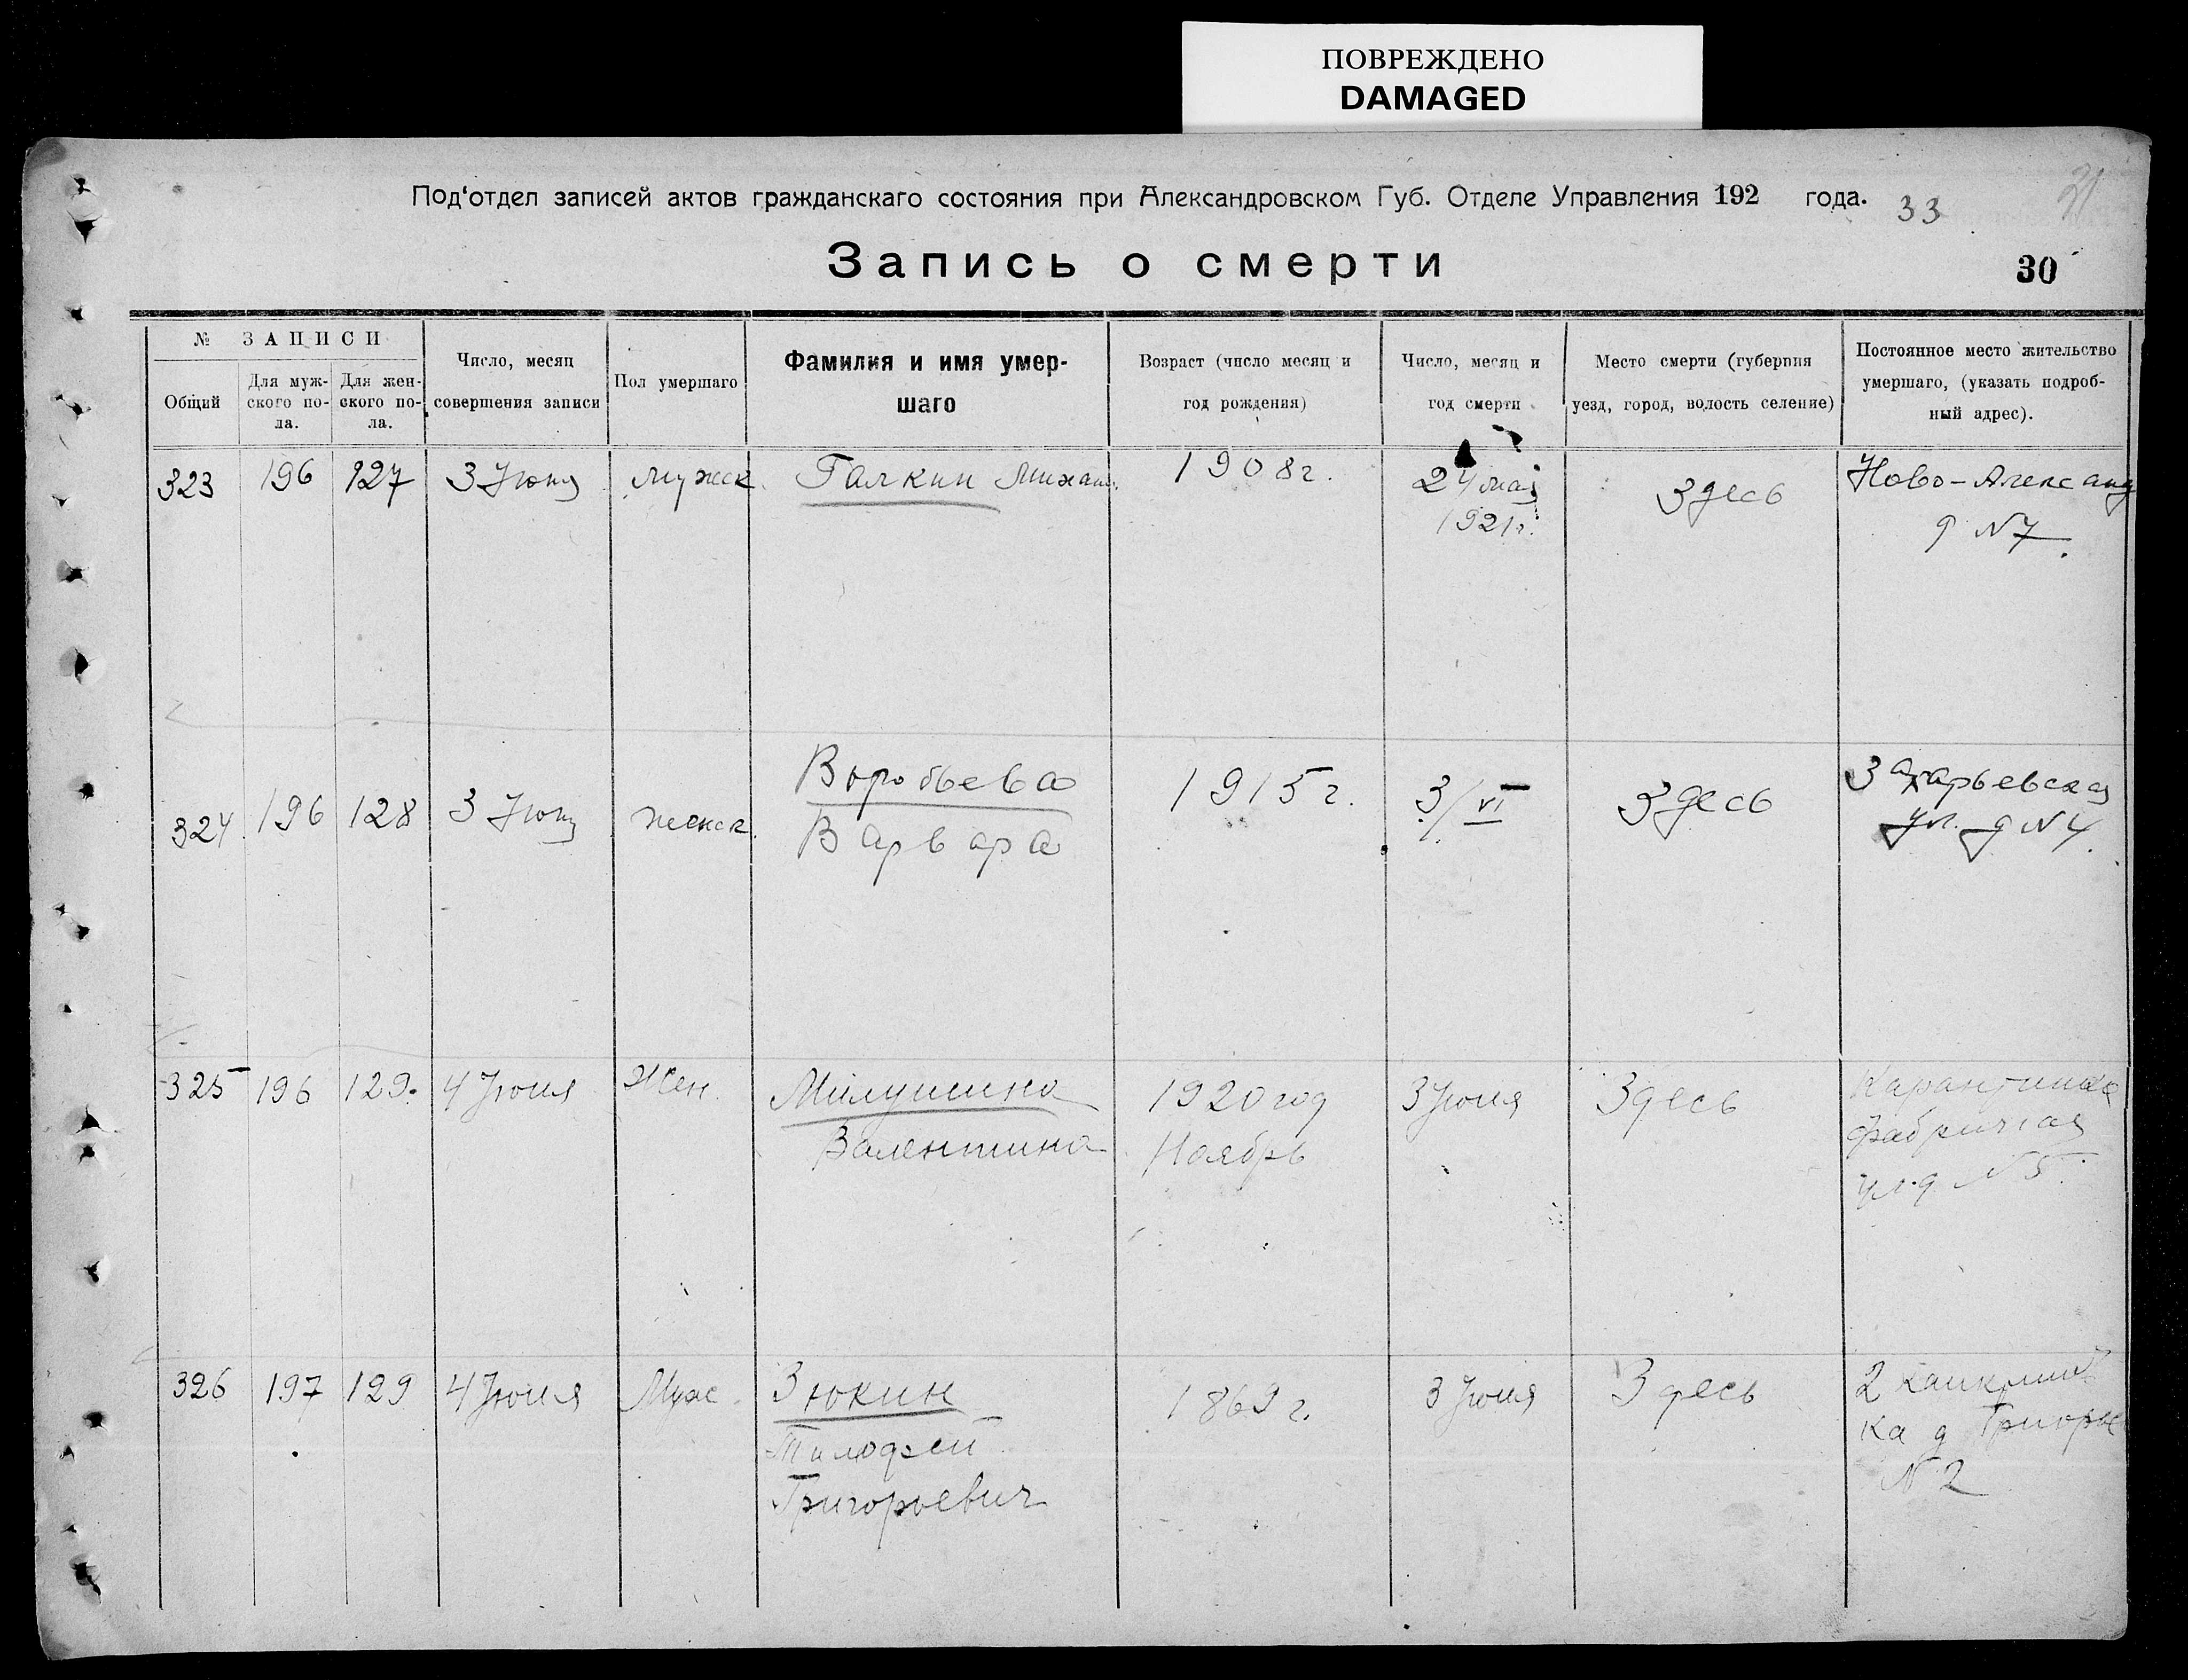 ПОВРЕЖДЕНО
DAMAGED
Под'отдел записей актов гражданскаго состояния при Александровском Губ. Отделе Управления 192 года. 33
31
Запись о смерти
30
№ ЗАПИСИ
Общий
Для муж-
ского по-
ла.
Для жен-
ского по-
ла.
Число, месяц
совершения записи
Пол умершаго
Фамилия и имя умер-
шаго
Возраст (число месяц и
год рождения)
Число, месяц и
год смерти
Место смерти (губерния
уезд, город, волость селение)
Постоянное место жительство
умершаго, (указать подроб-
ный адрес).
323 196 127 3 Июня мужск. Галкин Михаил. 1908 г. 24 мая
1921 г.
Здесь
Ново-Александ
д N 7.
324 196 128 3 Июня женск.
Воробьева
Варвара
1915 г. 3/VI Здесь
Захарьевская
ул. д N 4.
325 196 129. 4 Июня Жен.
Милушина
Валентина
1920 год
Ноябрь
3 Июня Здесь
Карантинка
Фабричная
ул. д N 5.
326 197 129 4 Июня Муж.
Зюкин
Григорьевич
1869 г. 3 Июня Здесь
2
ка д
N 2